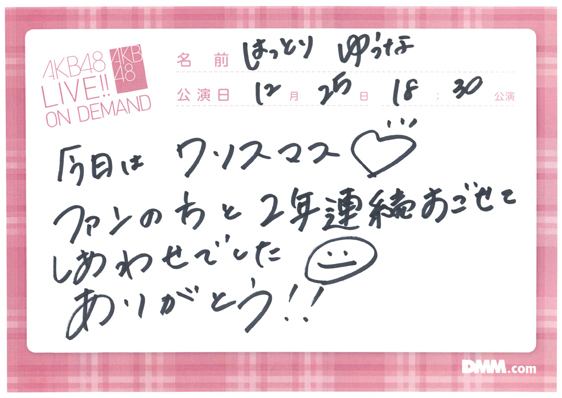 AKB48
LIVE!!
ON DEMAND
AKB
48
名前 はっとり ゆうな
公演日 12月 25日 18:30 公演
今日は クリスマス♡
ファンの方と2年連続すごせて
しあわせでした
ありがとう!!
DMM.com